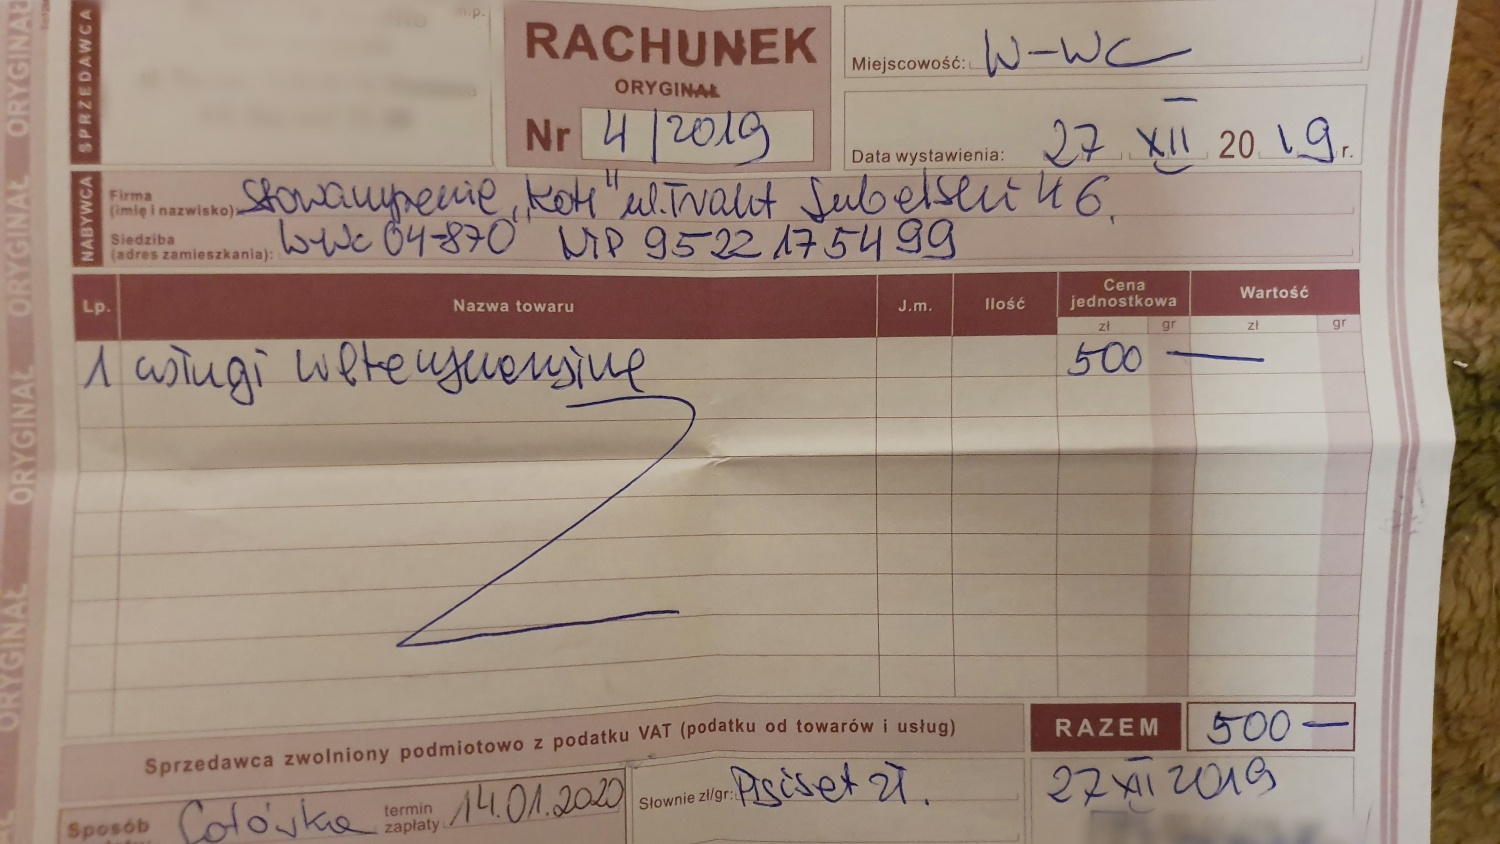 ORYGINAŁ ORYGINAŁ ORYGINAŁ ORYGINAŁ
SPRZEDAWCA
m.p.
RACHUNEK
ORYGINAŁ
Nr 4/2019
Miejscowość: W-wa
Data wystawienia: 27 XII 2019 r.
NABYWCA
Firma
(imię i nazwisko): Stowarzyszenie „Koti" ul. Trakt Lubelski 46.
Siedziba
(adres zamieszkania): W-wa 04-870 NIP 9522175499
Lp. Nazwa towaru J.m. Ilość Cena jednostkowa Wartość
zł gr zł gr
1 usługi weterynaryjne 500 —
Sprzedawca zwolniony podmiotowo z podatku VAT (podatku od towarów i usług)
RAZEM 500 —
Sposób Gotówka termin zapłaty 14.01.2020
Słownie zł/gr: Pięćset zł.
27 XII 2019